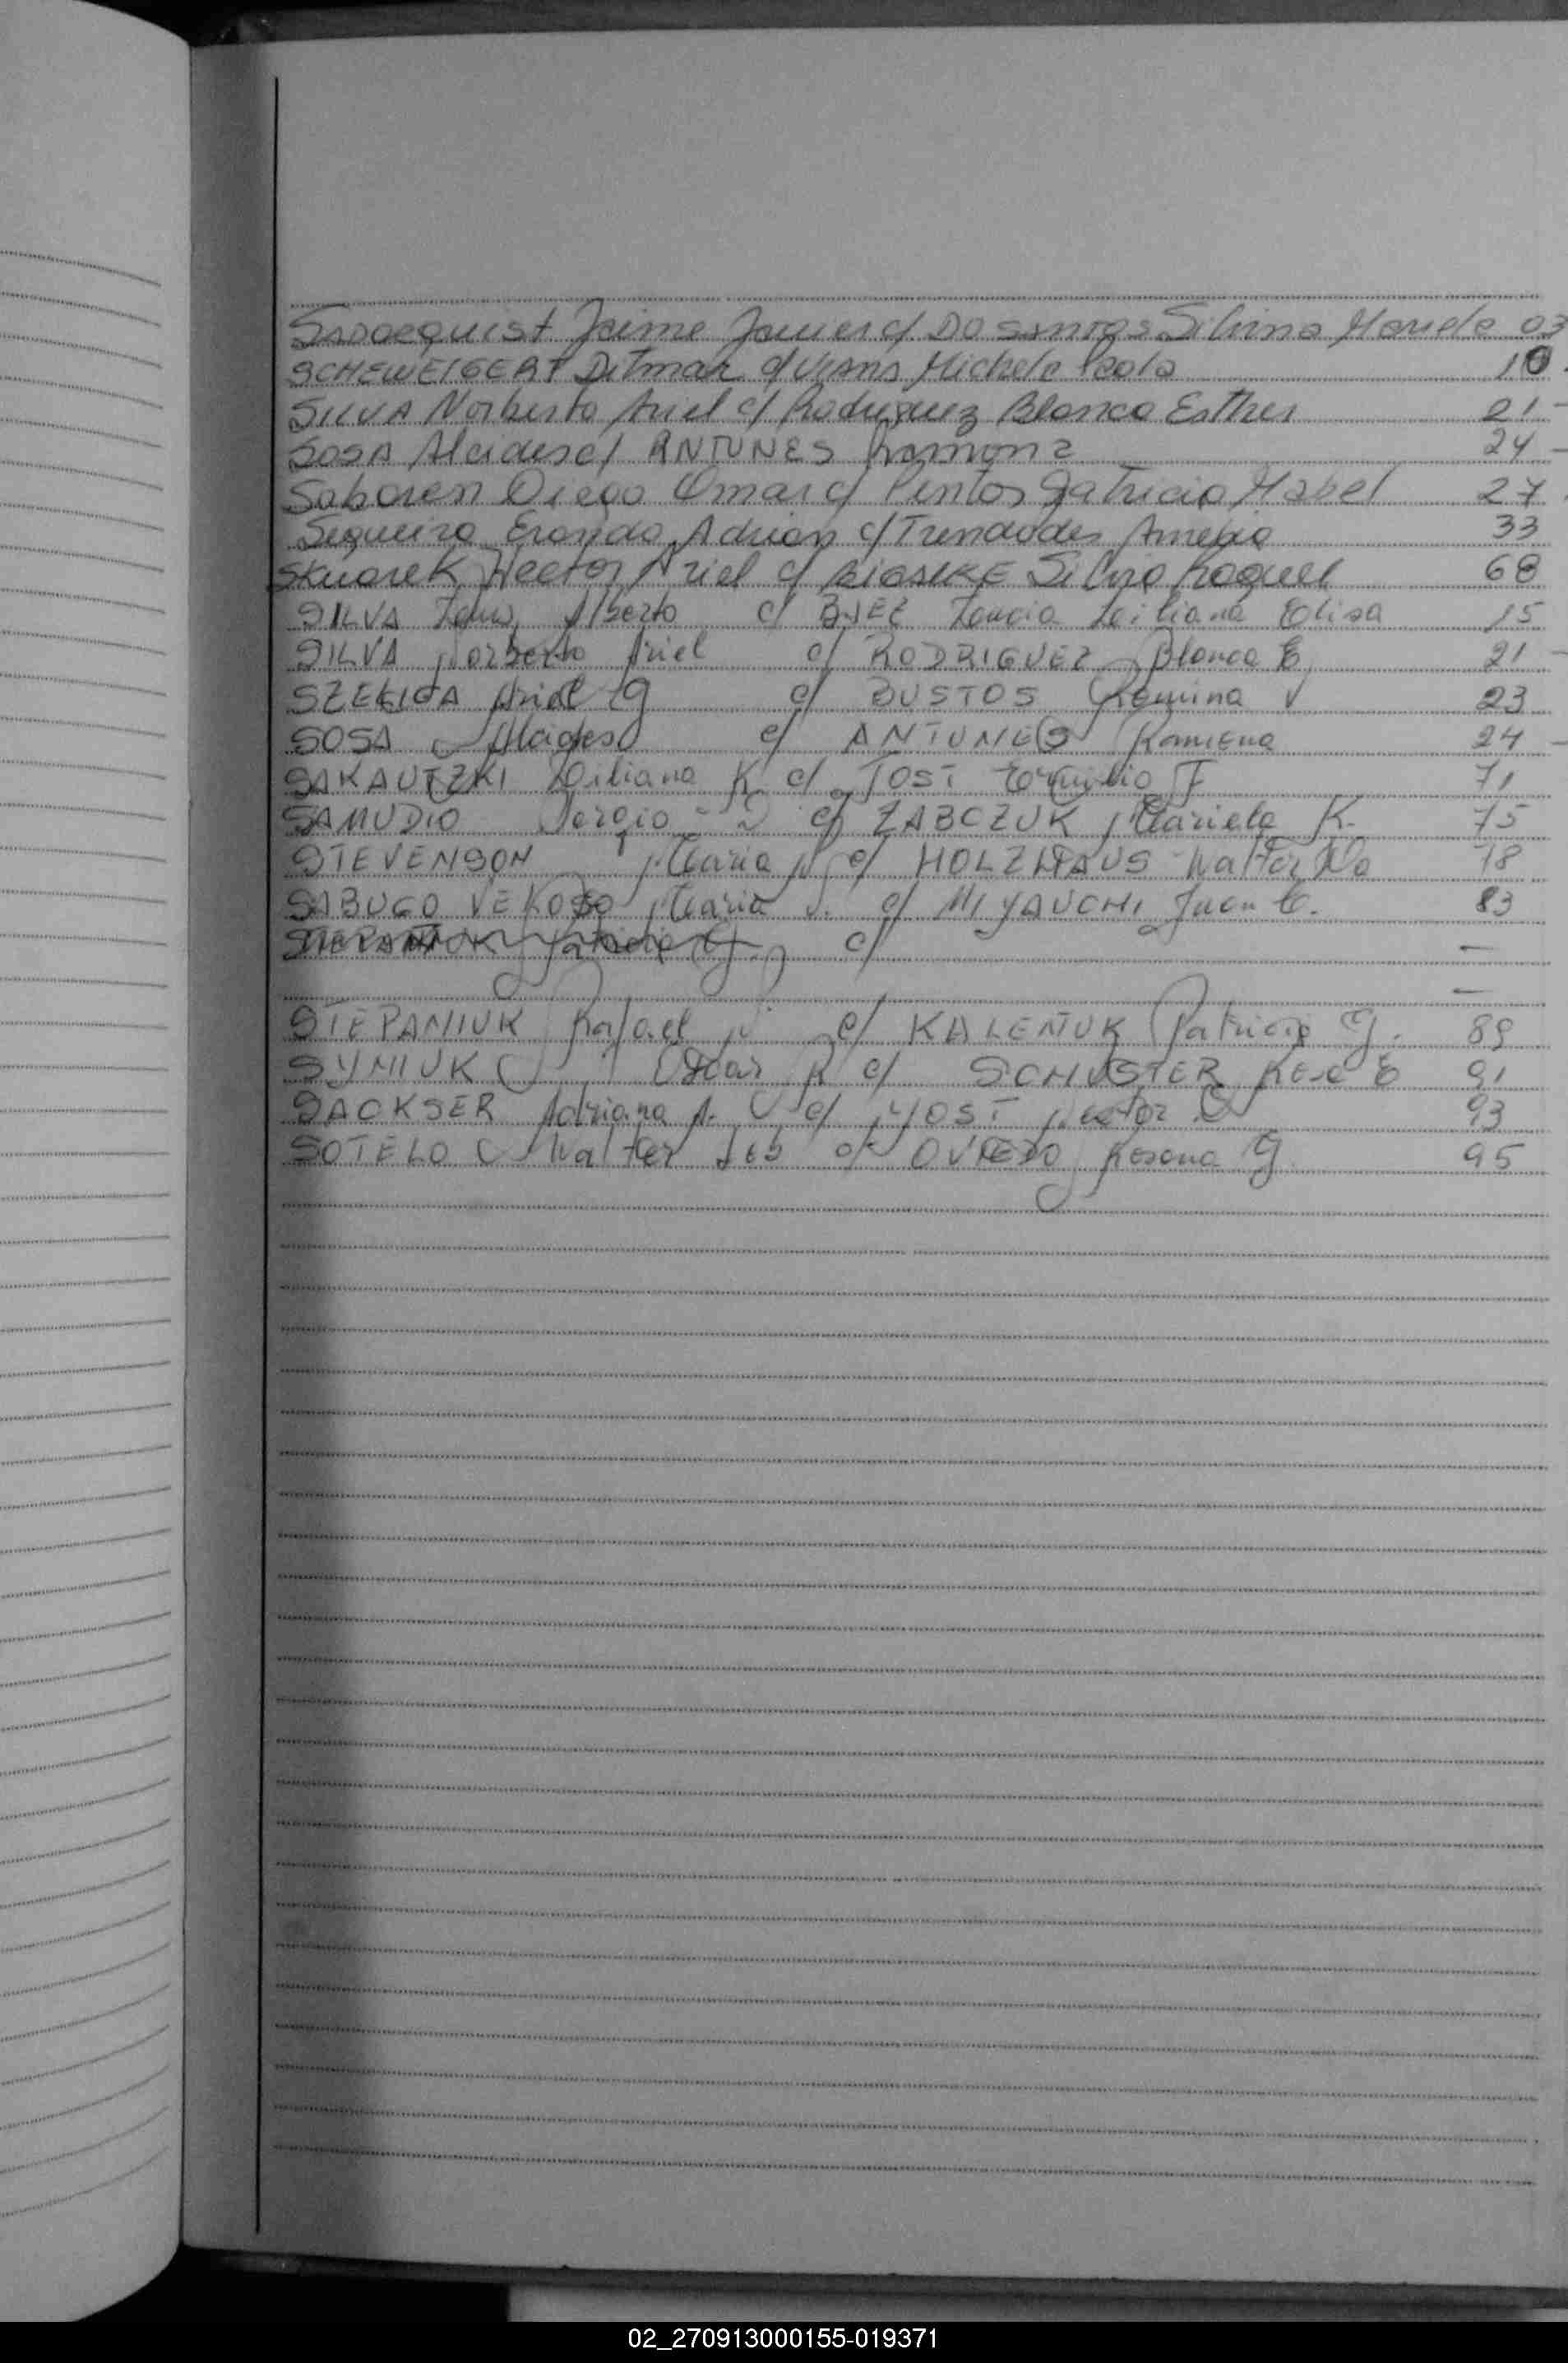 Sadoequist Jaime Javier c/ Do Santos Silvina Mariela 03
SCHEWEIGERT Ditmar c/ Michele Paola 10
SILVA Norberto Ariel c/ Rodriguez Blanca Esther 21
SOSA Alcides c/ ANTUNES Ramona 24
Diego Omar c/ Pintos Patricia Mabel 27
Sequeira Adrian c/ Amelia 33
Hector Ariel c/ Silvia Raquel 68
SILVA Luis Alberto c/ BAEZ Liliana Elisa 15
SILVA Norberto Ariel c/ RODRIGUEZ Blanca E 21
SZELIGA Ariel G c/ BUSTOS Romina V 23
SOSA Alcides c/ ANTUNES 24
SAKAUTZKI Liliana K c/ JOST F 71
SAMUDIO Sergio D c/ ZABCZUK Mariela K. 75
STEVENSON Maria c/ HOLZHAUS Walter 78
SABUGO Maria c/ MIYAUCHI Juan C. 83
c/ —
—
STEPANIUK Rafael c/ KALENIUK Patricia G. 89
SYNIUK Oscar R c/ SCHUSTER Rosa E 91
SACKSER Adriana A. c/ YOST Hector 93
SOTELO Walter c/ OVIEDO Rosana G. 95
02_270913000155-019371